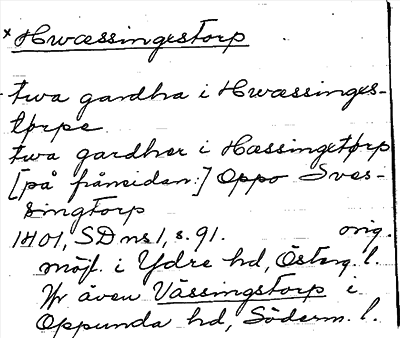 × Hwæssingestorp
twa gardha i Hwæssinges-
tørpe
twa gardher i Hæssingetørp
[på frånsidan:] Oppo Svæs-
singtorp
1401, SD ns 1, s. 91. orig.
möjl. i Ydre hd, Österg. l.
Jfr även Vässingstorp i
Oppunda hd, Söderm. l.